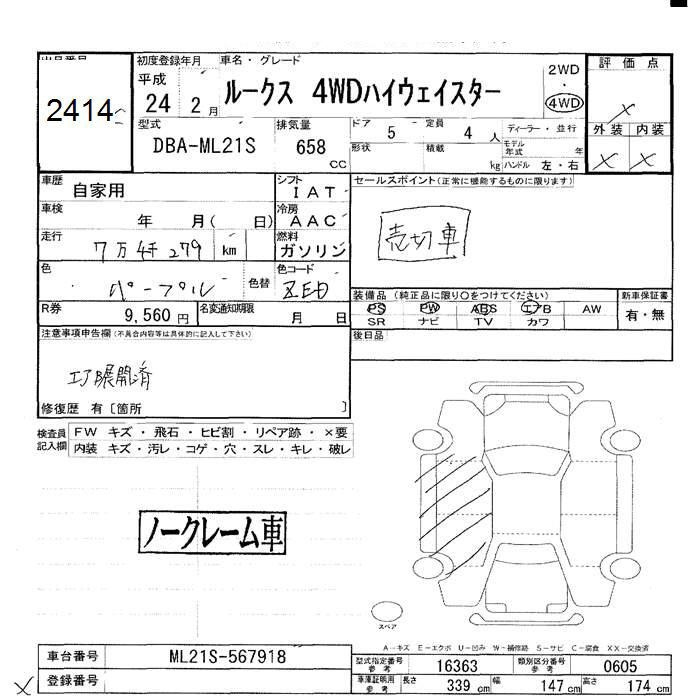 初度登録年月 車名・グレード
評価点
2414
平成
24 2月
ルークス 4WDハイウェイスター
2WD
・
4WD
×
型式
DBA-ML21S
排気量
658 CC
ドア 5 定員 4 人
形状 積載 kg
ディーラー・並行
モデル年式 年
ハンドル 左・右
外装 内装
× ×
車歴 自家用
シフト IAT
セールスポイント(正常に機能するものに限ります)
車検 年 月( 日)
冷房 AAC
売切車
走行 7万4千279 km
燃料 ガソリン
色 パープル 色替
色コード ZED
R券 9,560円
名変通知期限 月 日
装備品(純正品に限り○をつけてください)
PS PW ABS エアB AW
SR ナビ TV カワ
新車保証書
有・無
注意事項申告欄(不具合内容等は具体的に記入して下さい)
後日品
エアB展開済
修復歴 有〔箇所 〕
検査員記入欄
FW キズ・飛石・ヒビ割・リペア跡・×要
内装 キズ・汚レ・コゲ・穴・スレ・キレ・破レ
ノークレーム車
スペア
A-キズ E-エクボ U-凹み W-補修跡 S-サビ C-腐食 XX-交換済
車台番号 ML21S-567918
登録番号
×
型式指定番号参考 16363
類別区分番号参考 0605
車庫証明用参考 長さ 339 cm 幅 147 cm 高さ 174 cm